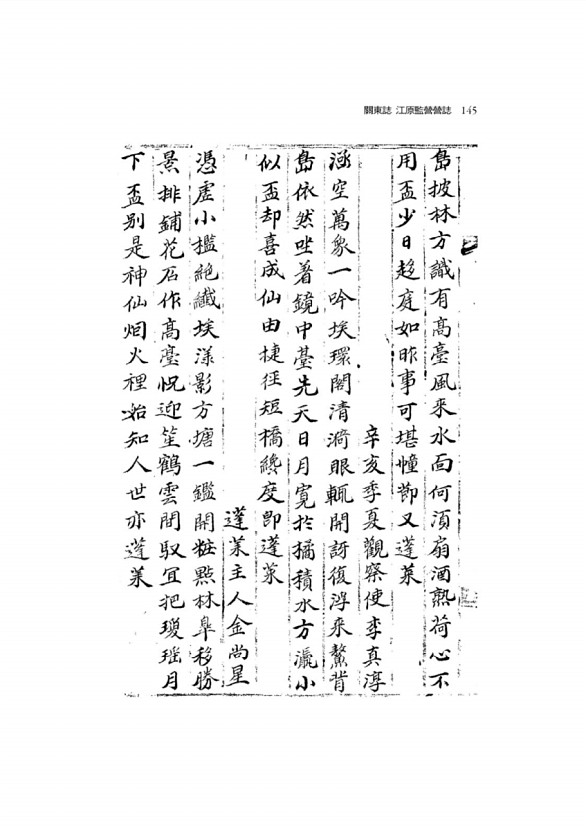 關東誌 江原監營營誌 145
島披林方識有高臺風來水面何須扇酒熟荷心不
用盃少日趍庭如昨事可堪幢節又蓬萊
辛亥季夏觀察使李真淳
涵空萬象一吟埃環閣清漪眼輒開訝復浮來鰲背
島依然坐著鏡中臺先天日月寬於橘積水方瀛小
似盃却喜成仙由捷徑短橋纔度即蓬萊
蓬萊主人金尚星
憑虛小檻絶纖埃漾影方塘一鑑開粧點林皐移勝
景排鋪花石作高臺怳迎笙鶴雲間馭冝把瓊瑤月
下盃别是神仙烟火裡始知人世亦蓬萊